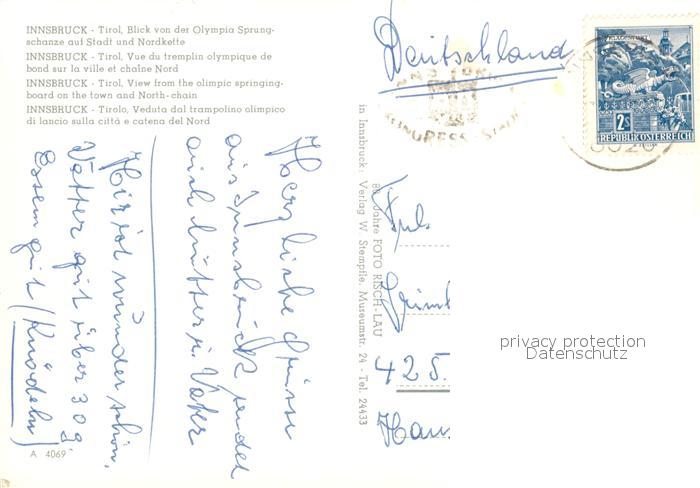 INNSBRUCK - Tirol, Blick von der Olympia Sprung-
schanze auf Stadt und Nordkette
INNSBRUCK - Tirol, Vue du tremplin olympique de
bond sur la ville et chaîne Nord
INNSBRUCK - Tirol, View from the olimpic springing-
board on the town and North-chain
INNSBRUCK - Tirolo, Veduta dal trampolino olimpico
di lancio sulla città e catena del Nord
Herzliche Grüsse
aus Innsbruck sendet
auch Mutter u. Vater
Hier ist wunder schön,
Wetter gut über 30 g.
Essen gut (Knödeln)
A 4069
80 Jahre FOTO RISCH-LAU
in Innsbruck: Verlag W. Stempfle, Museumstr. 24 - Tel. 24433
Deutschland
KONGRESS
2S
REPUBLIK ÖSTERREICH
Frl.
425
Hau
privacy protection
Datenschutz